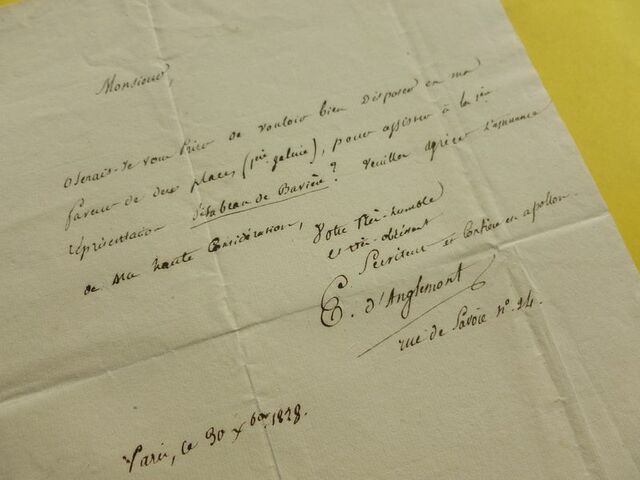 Monsieur,
oserais-je vous prier de vouloir bien disposer en ma
faveur de deux places (1ère galerie), pour assister à la 1ère
représentation d'Isabeau de Bavière? Veuillez agréer l'assurance
de ma haute considération,
Votre très-humble
et très-obéissant
Serviteur et Confrère en apollon.
E. d'Anglemont
rue de Savoie n°. 24.
Paris, le 30 Xbre 1828.